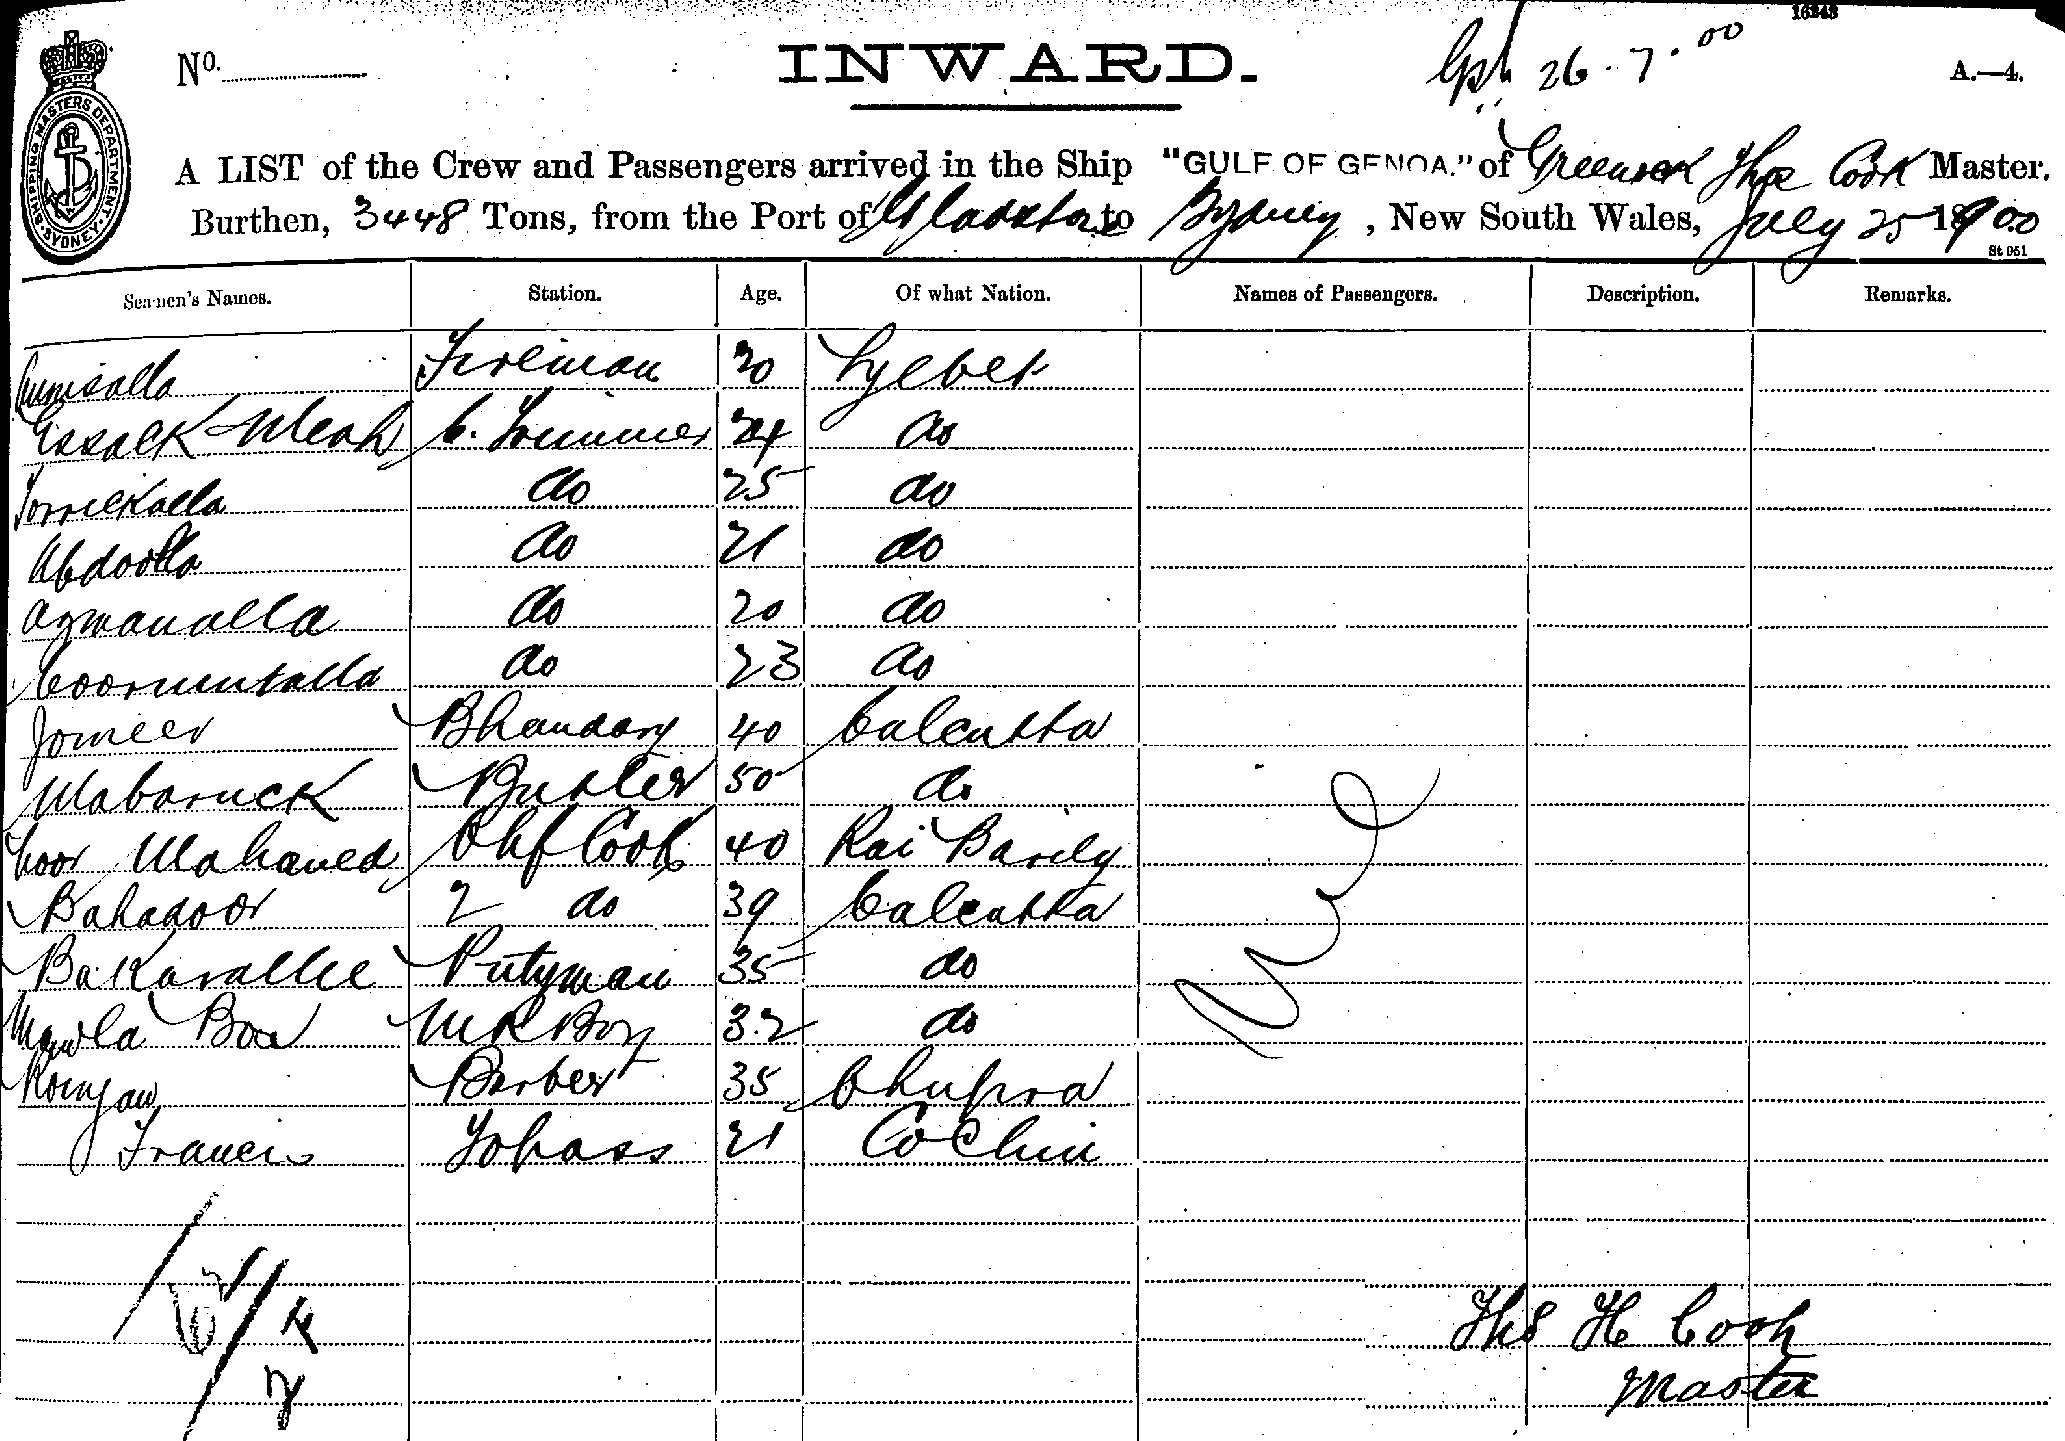 16243
No.
INWARD.
26.7.00
A.—4.
SHIPPING MASTERS DEPARTMENT SYDNEY
A LIST of the Crew and Passengers arrived in the Ship "GULF OF GENOA." of Greenock Thos Cook Master.
Burthen, 3448 Tons, from the Port of Gladstone to Sydney, New South Wales, July 25 1900
St 951
Seamen's Names. Station. Age. Of what Nation. Names of Passengers. Description. Remarks.
Fireman 20 Sylhet
Essack Meah C. Trimmer 24 do
Torrickalla do 25 do
Abdoolla do 21 do
Azmanalla do 20 do
do 23 do
Jomeer Bhandary 40 Calcutta
Mabaruck Butler 50 do
Noor Mahamed Chf Cook 40 Rai Barily
Bahadoor 2 do 39 Calcutta
Bakarallie Putyman 35 do
Mowla Box M R Boy 32 do
Barber 35 Chupra
Francis Tobass 21 Cochin
Nil
Ths H Cook
Master